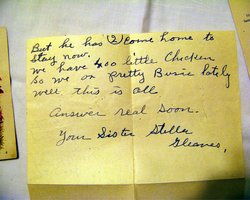 (2)
But he has come home to
stay now.
we have 400 little Chicken
So we on pretty Busie lately
well this is all
Answer real soon.
Your Sister Stella
Gleaves,